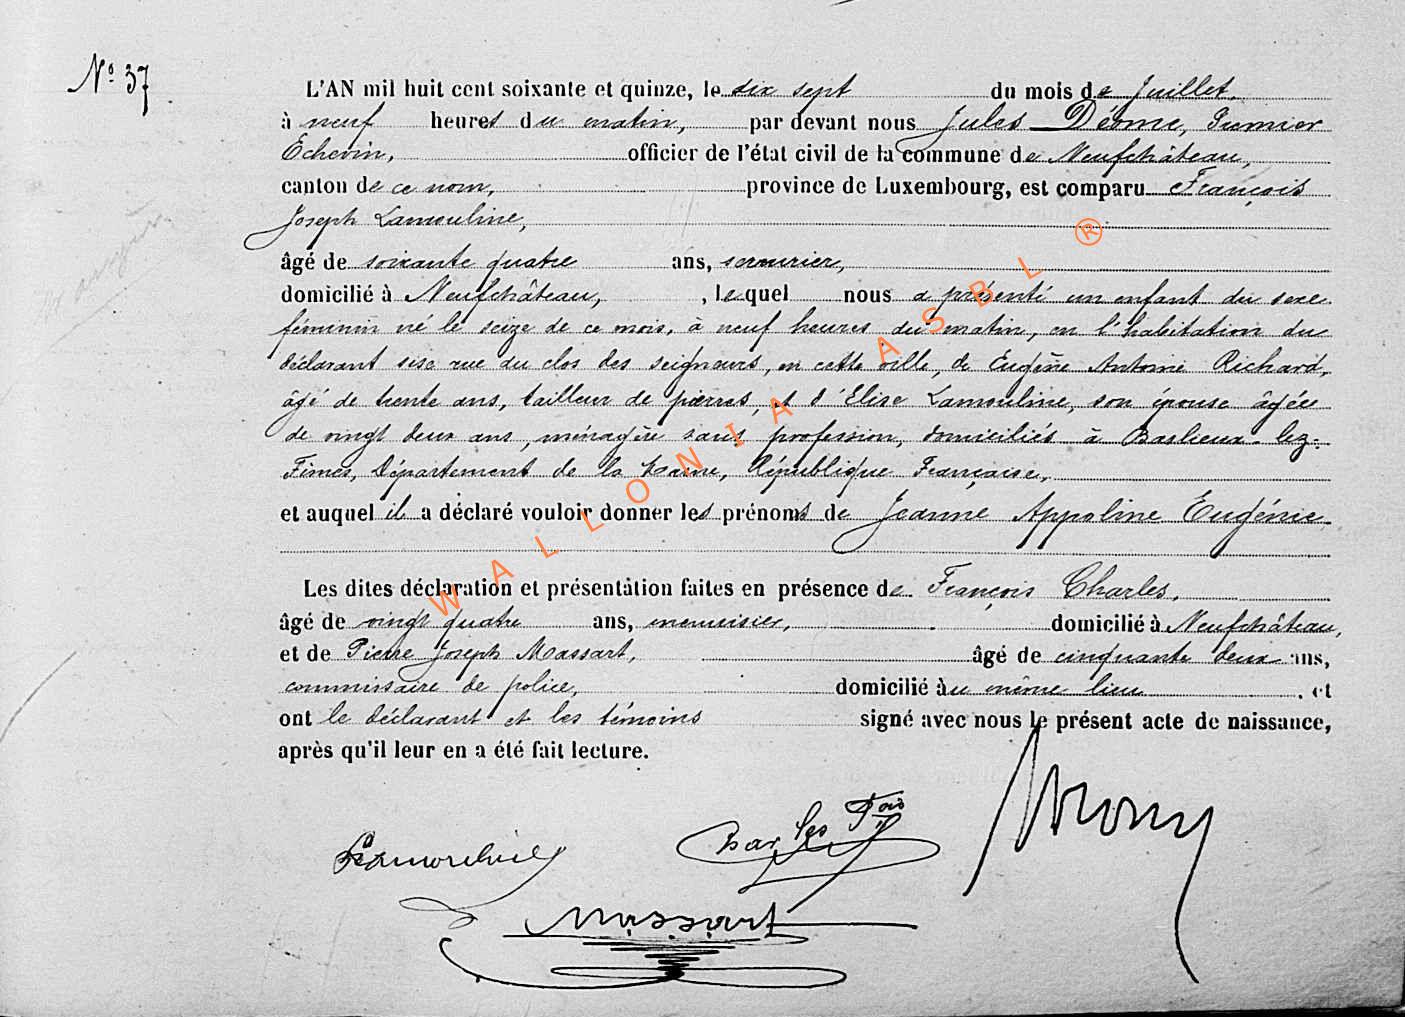 N° 37
L'AN mil huit cent soixante et quinze, le dix sept du mois de Juillet,
à neuf heures du matin, par devant nous Jules Déome, Premier
Echevin, officier de l'état civil de la commune de Neufchâteau,
canton de ce nom, province de Luxembourg, est comparu François
Joseph Lamouline,
âgé de soixante quatre ans, serrurier,
domicilié à Neufchâteau, , lequel nous a présenté un enfant du sexe
féminin né le seize de ce mois, à neuf heures du matin, en l'habitation du
déclarant sise rue du clos des seigneurs, en cette ville, de Eugène Antoine Richard,
âgé de trente ans, tailleur de pierres, et d'Elise Lamouline, son épouse âgée
de vingt deux ans, ménagère sans profession, domiciliés à Baslieux-lez-
Fimes, Département de la Marne, République Française,
et auquel il a déclaré vouloir donner les prénoms de Jeanne Appoline Eugénie
Les dites déclaration et présentation faites en présence de François Charles,
âgé de vingt quatre ans, menuisier, domicilié à Neufchâteau,
et de Pierre Joseph Massart, âgé de cinquante deux ans,
commissaire de police, domicilié àu même lieu , et
ont le déclarant et les témoins signé avec nous le présent acte de naissance,
après qu'il leur en a été fait lecture.
Charles Fois
Massart
WALLONIA ASBL ®